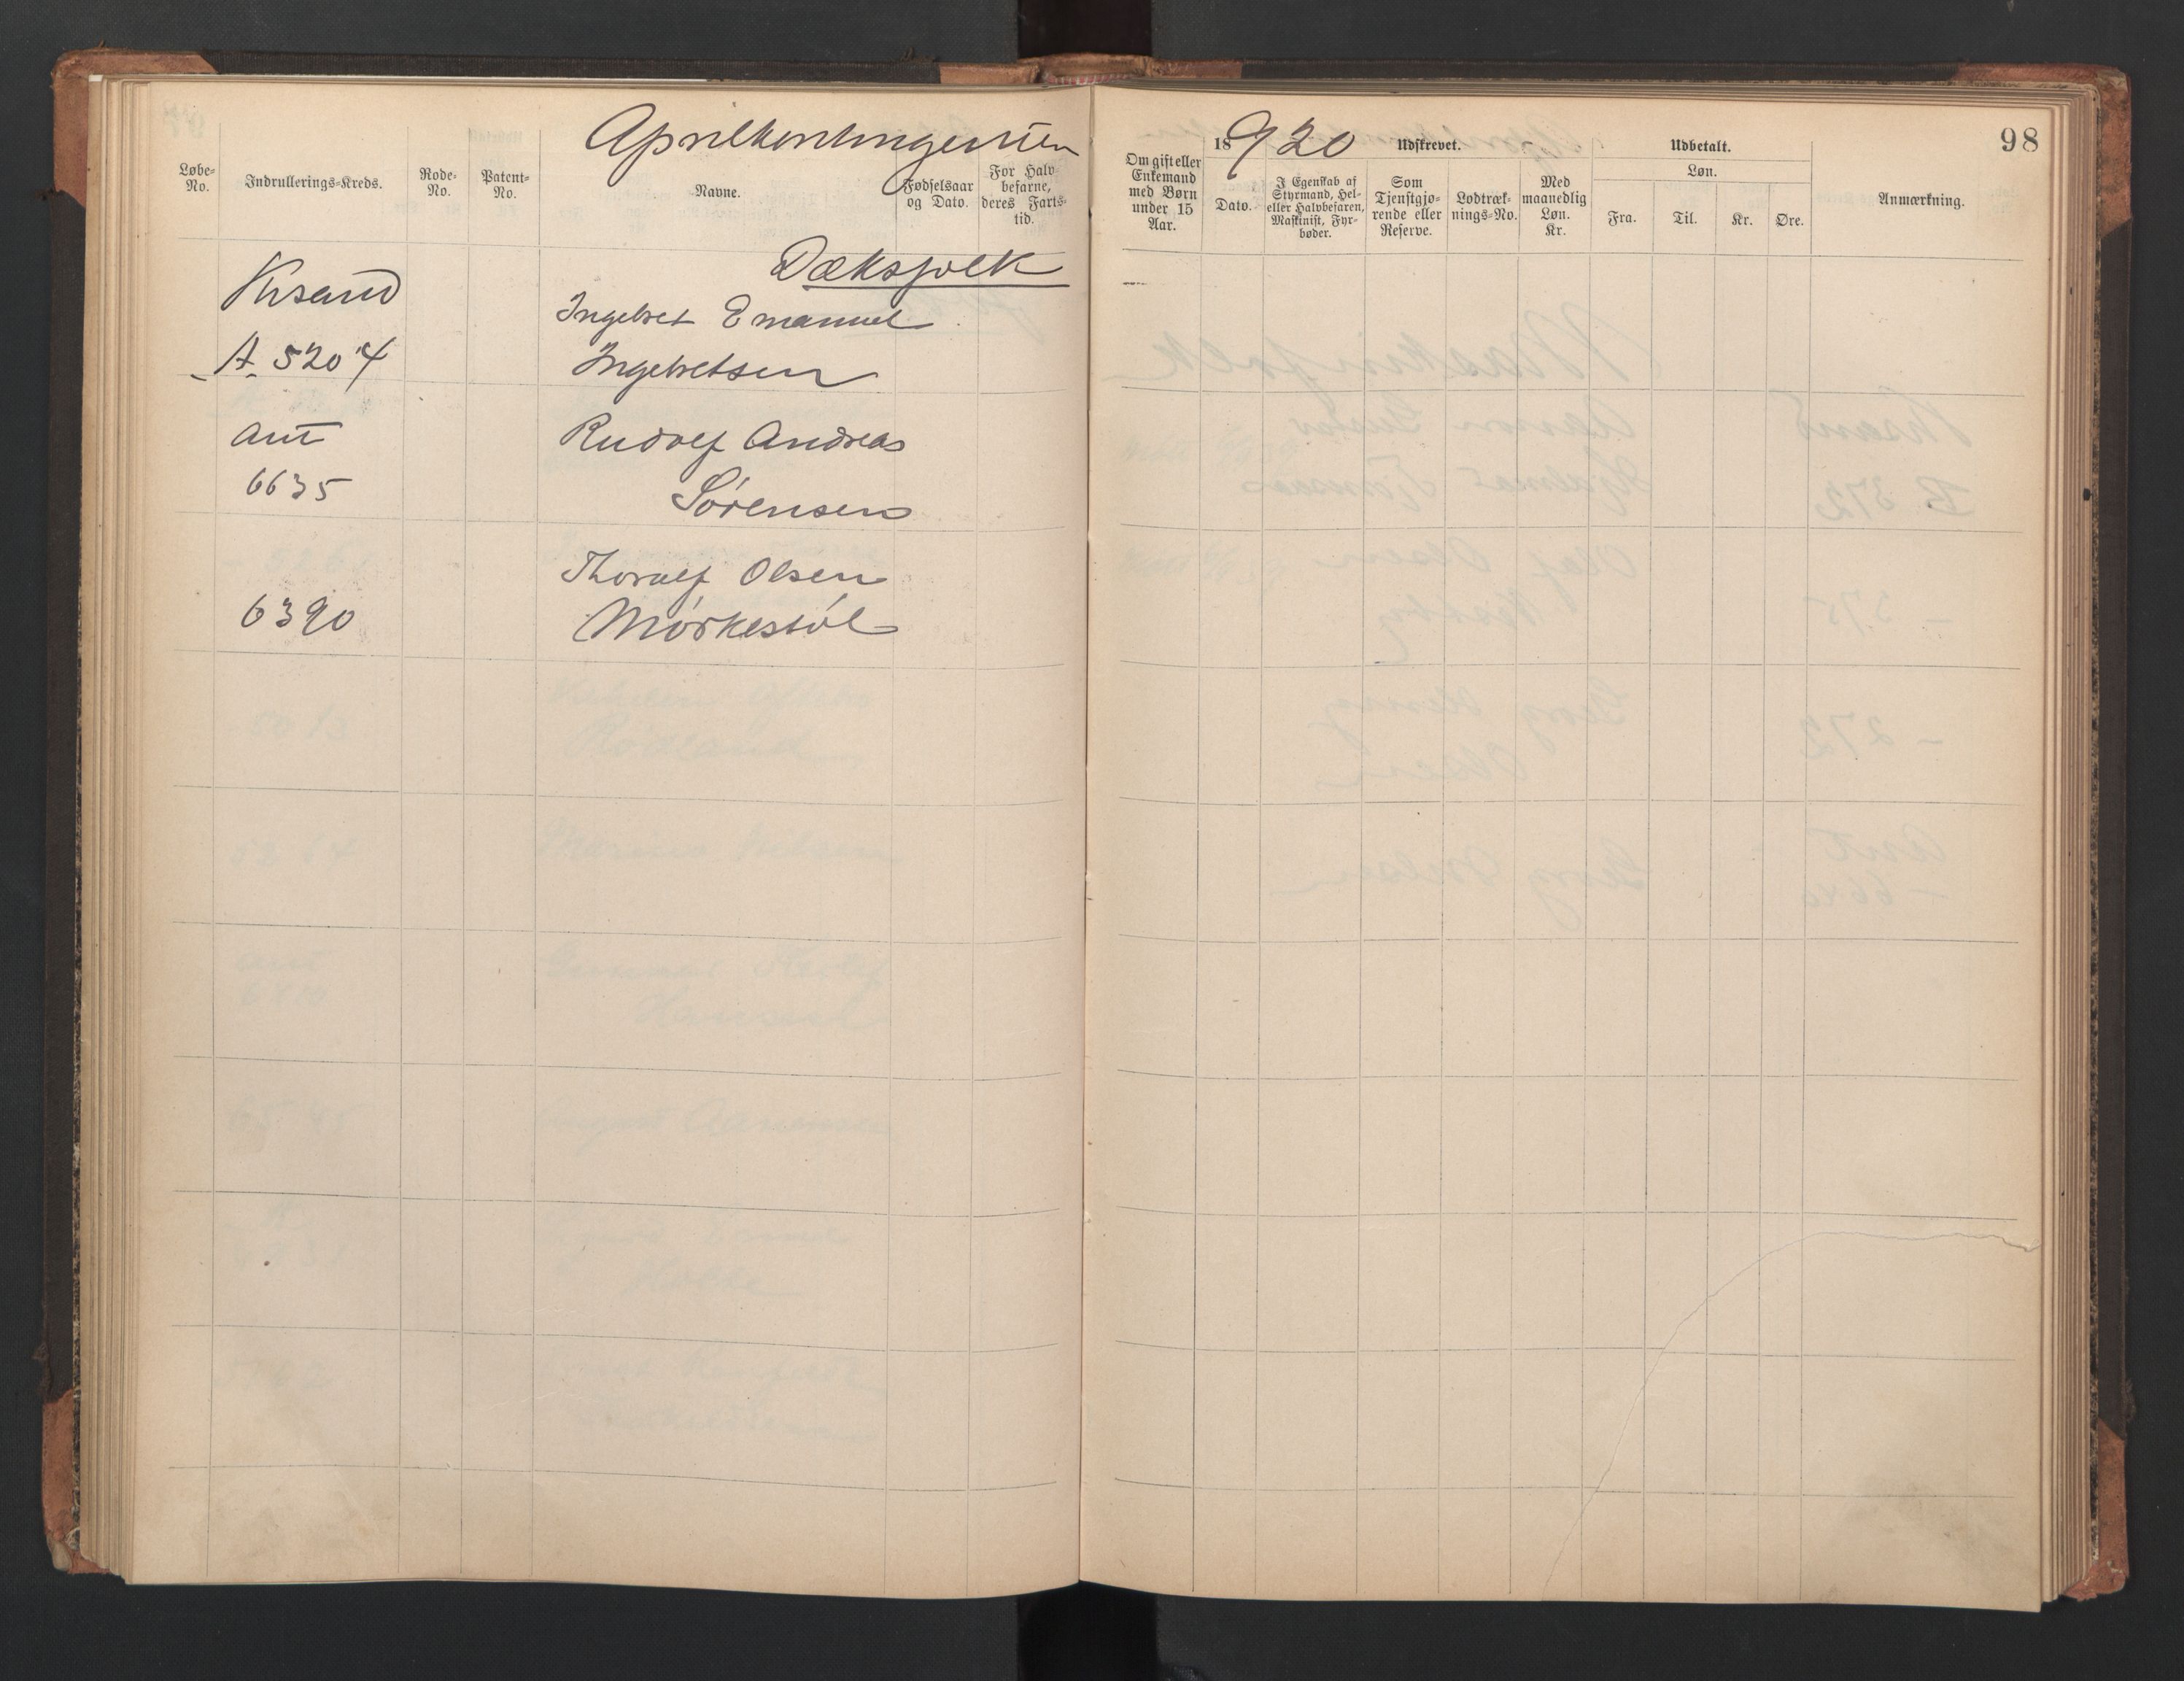 Aprilkontingenten 18920
98
Løbe-No.
Indrullerings-Kreds.
Rode-No.
Patent-No.
Navne.
Fødselsaar og Dato.
For Halvbefarne, deres Fartstid.
Om gift eller Enkemand med Børn under 15 Aar.
Udskrevet.
Dato.
I Egenskab af Styrmand, Hel- eller Halvbefaren, Maskinist, Fyrbøder.
Som Tjenstgjørende eller Reserve.
Lodtræknings-No.
Med maanedlig Løn. Kr.
Udbetalt.
Løn.
Fra.
Til.
Kr.
Øre.
Anmærkning.
Dæksfolk
Krsand
Ingebret Emanuel
A. 5204
Ingebretsen
Amt
Rudolf Andreas
6635
Sørensen
Thoralf Olsen
6390
Mørkestøl